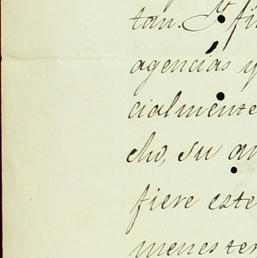 tan. Y fi
agencias y
cialmente
cho, su an
fiere este
menester